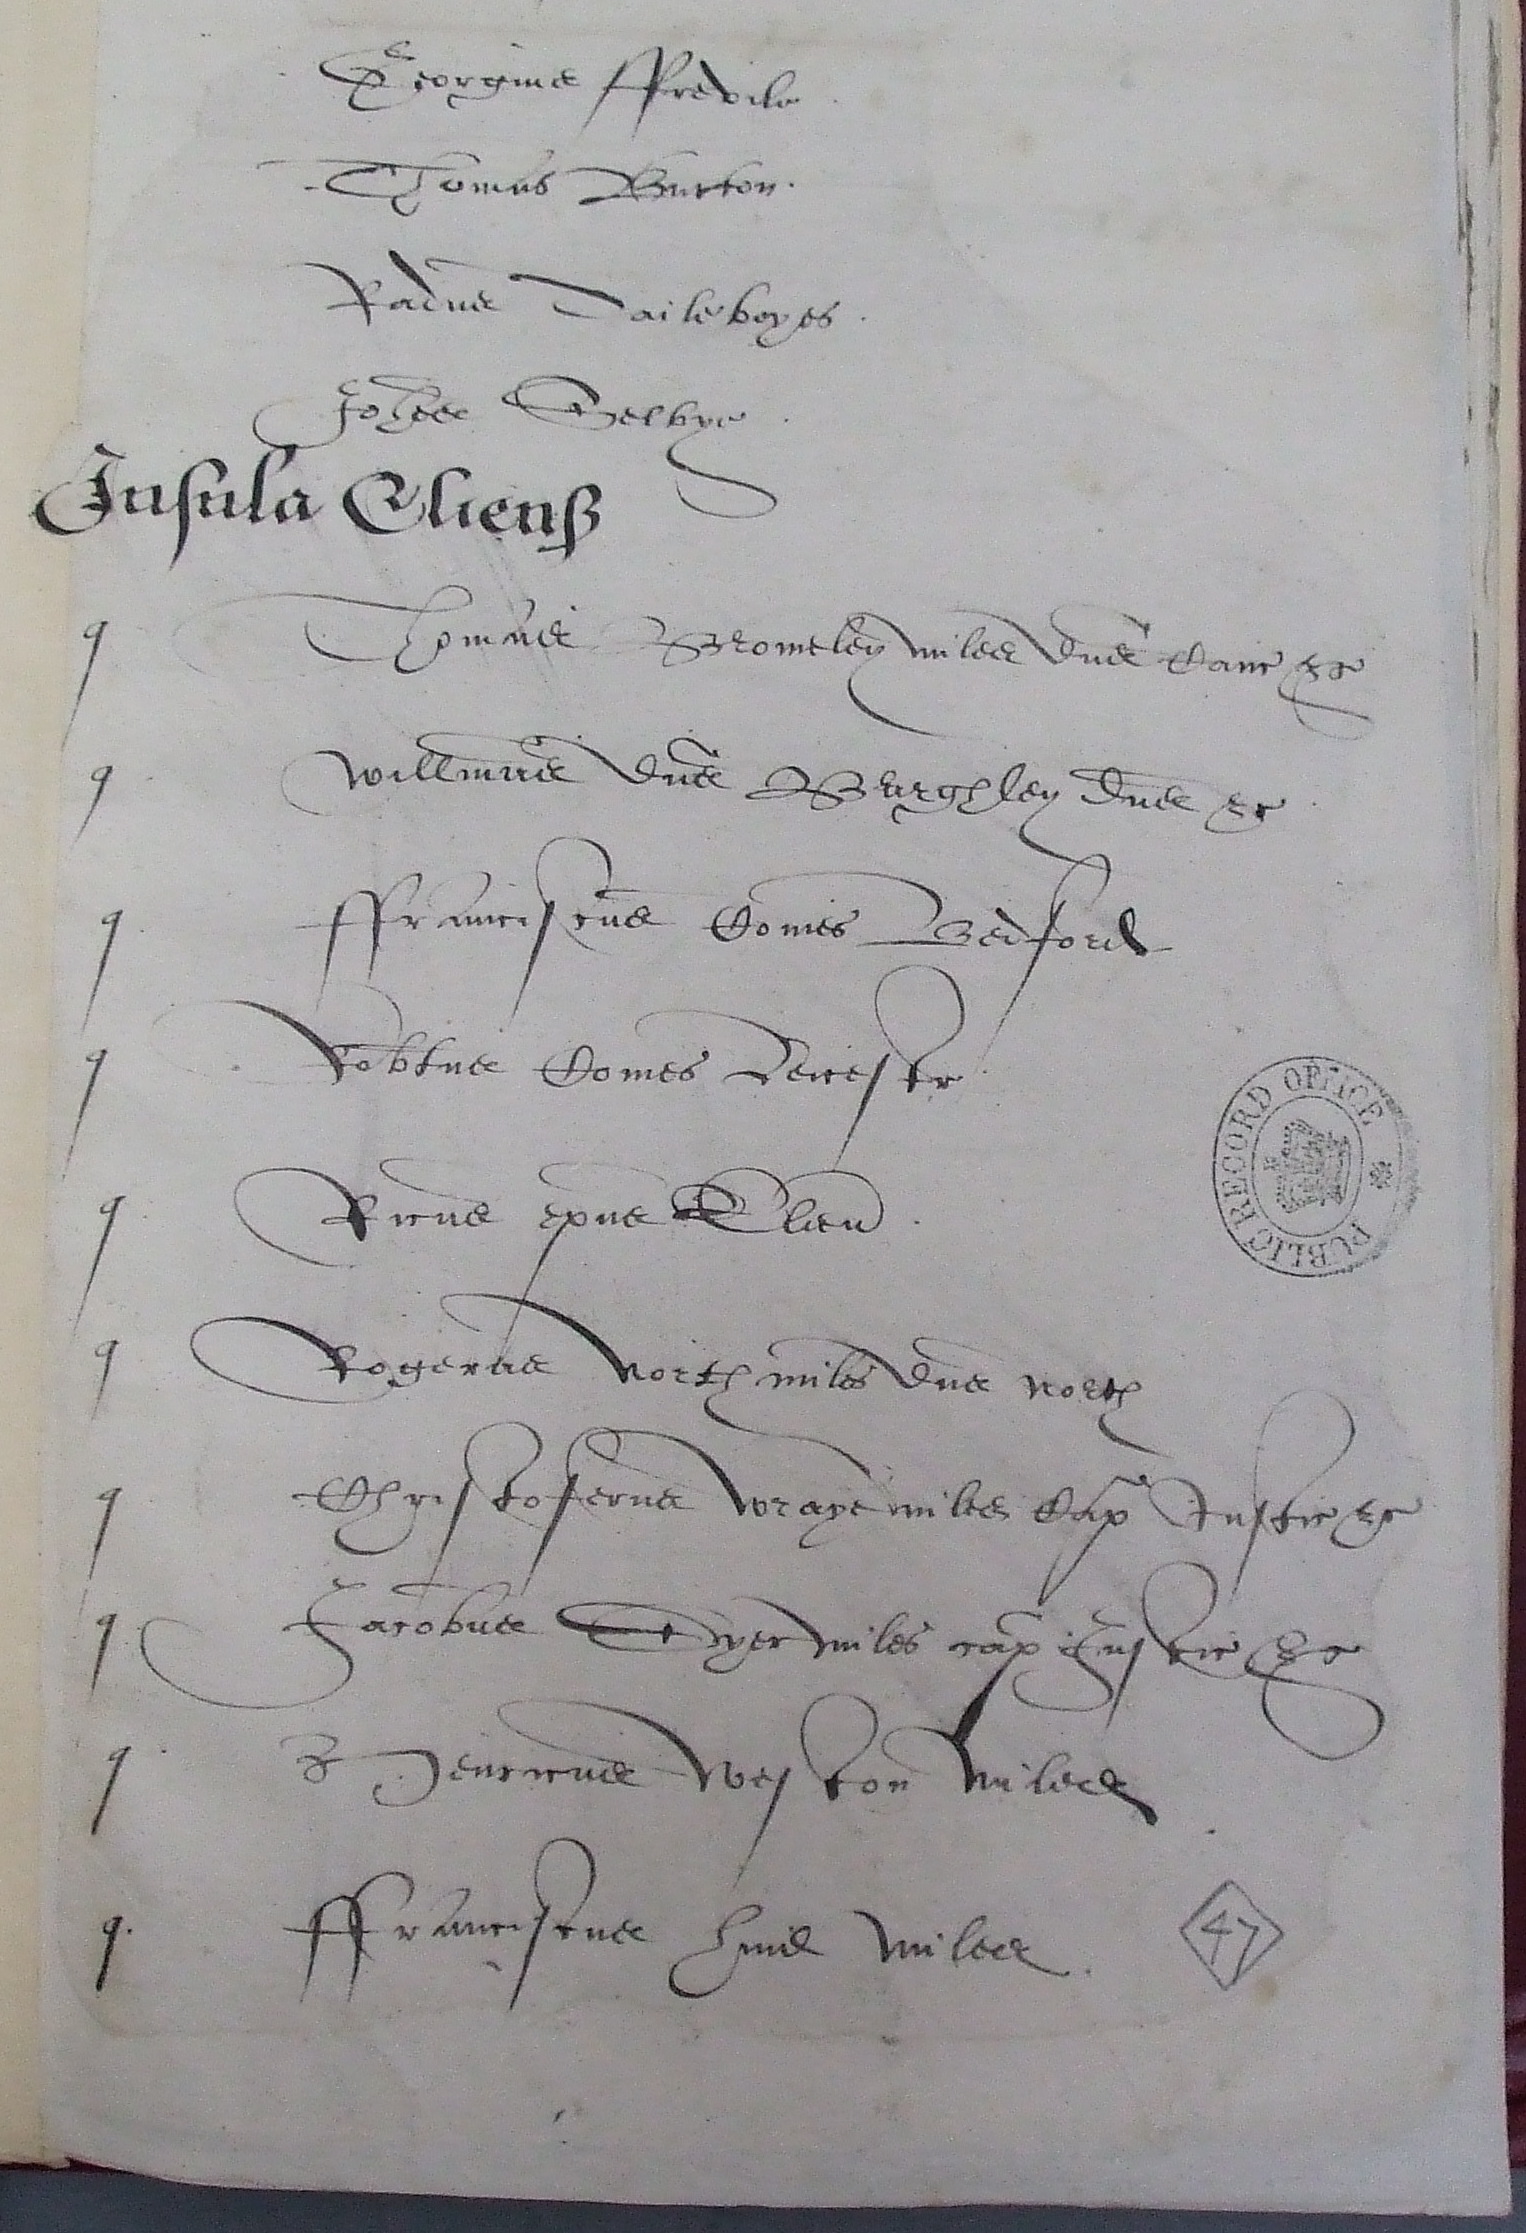 Georgius ffrevile
Thomas Burton
Radus Taileboyes
Johes Selbye
Insula Eliens
q Thomas Bromeley miles dns Canc &c
q Willmus dns Burghley dns &c
q ffranciscus Comes Bedford
q Robtus Comes Leicestr
q Ricus epus Elien
q Rogerus North miles dns North
q Christoferus Wraye miles Cap Justic &c
q Jacobus Dyer miles cap Justic &c
q Henricus Weston miles
q ffranciscus Hind miles
PUBLIC RECORD OFFICE
47